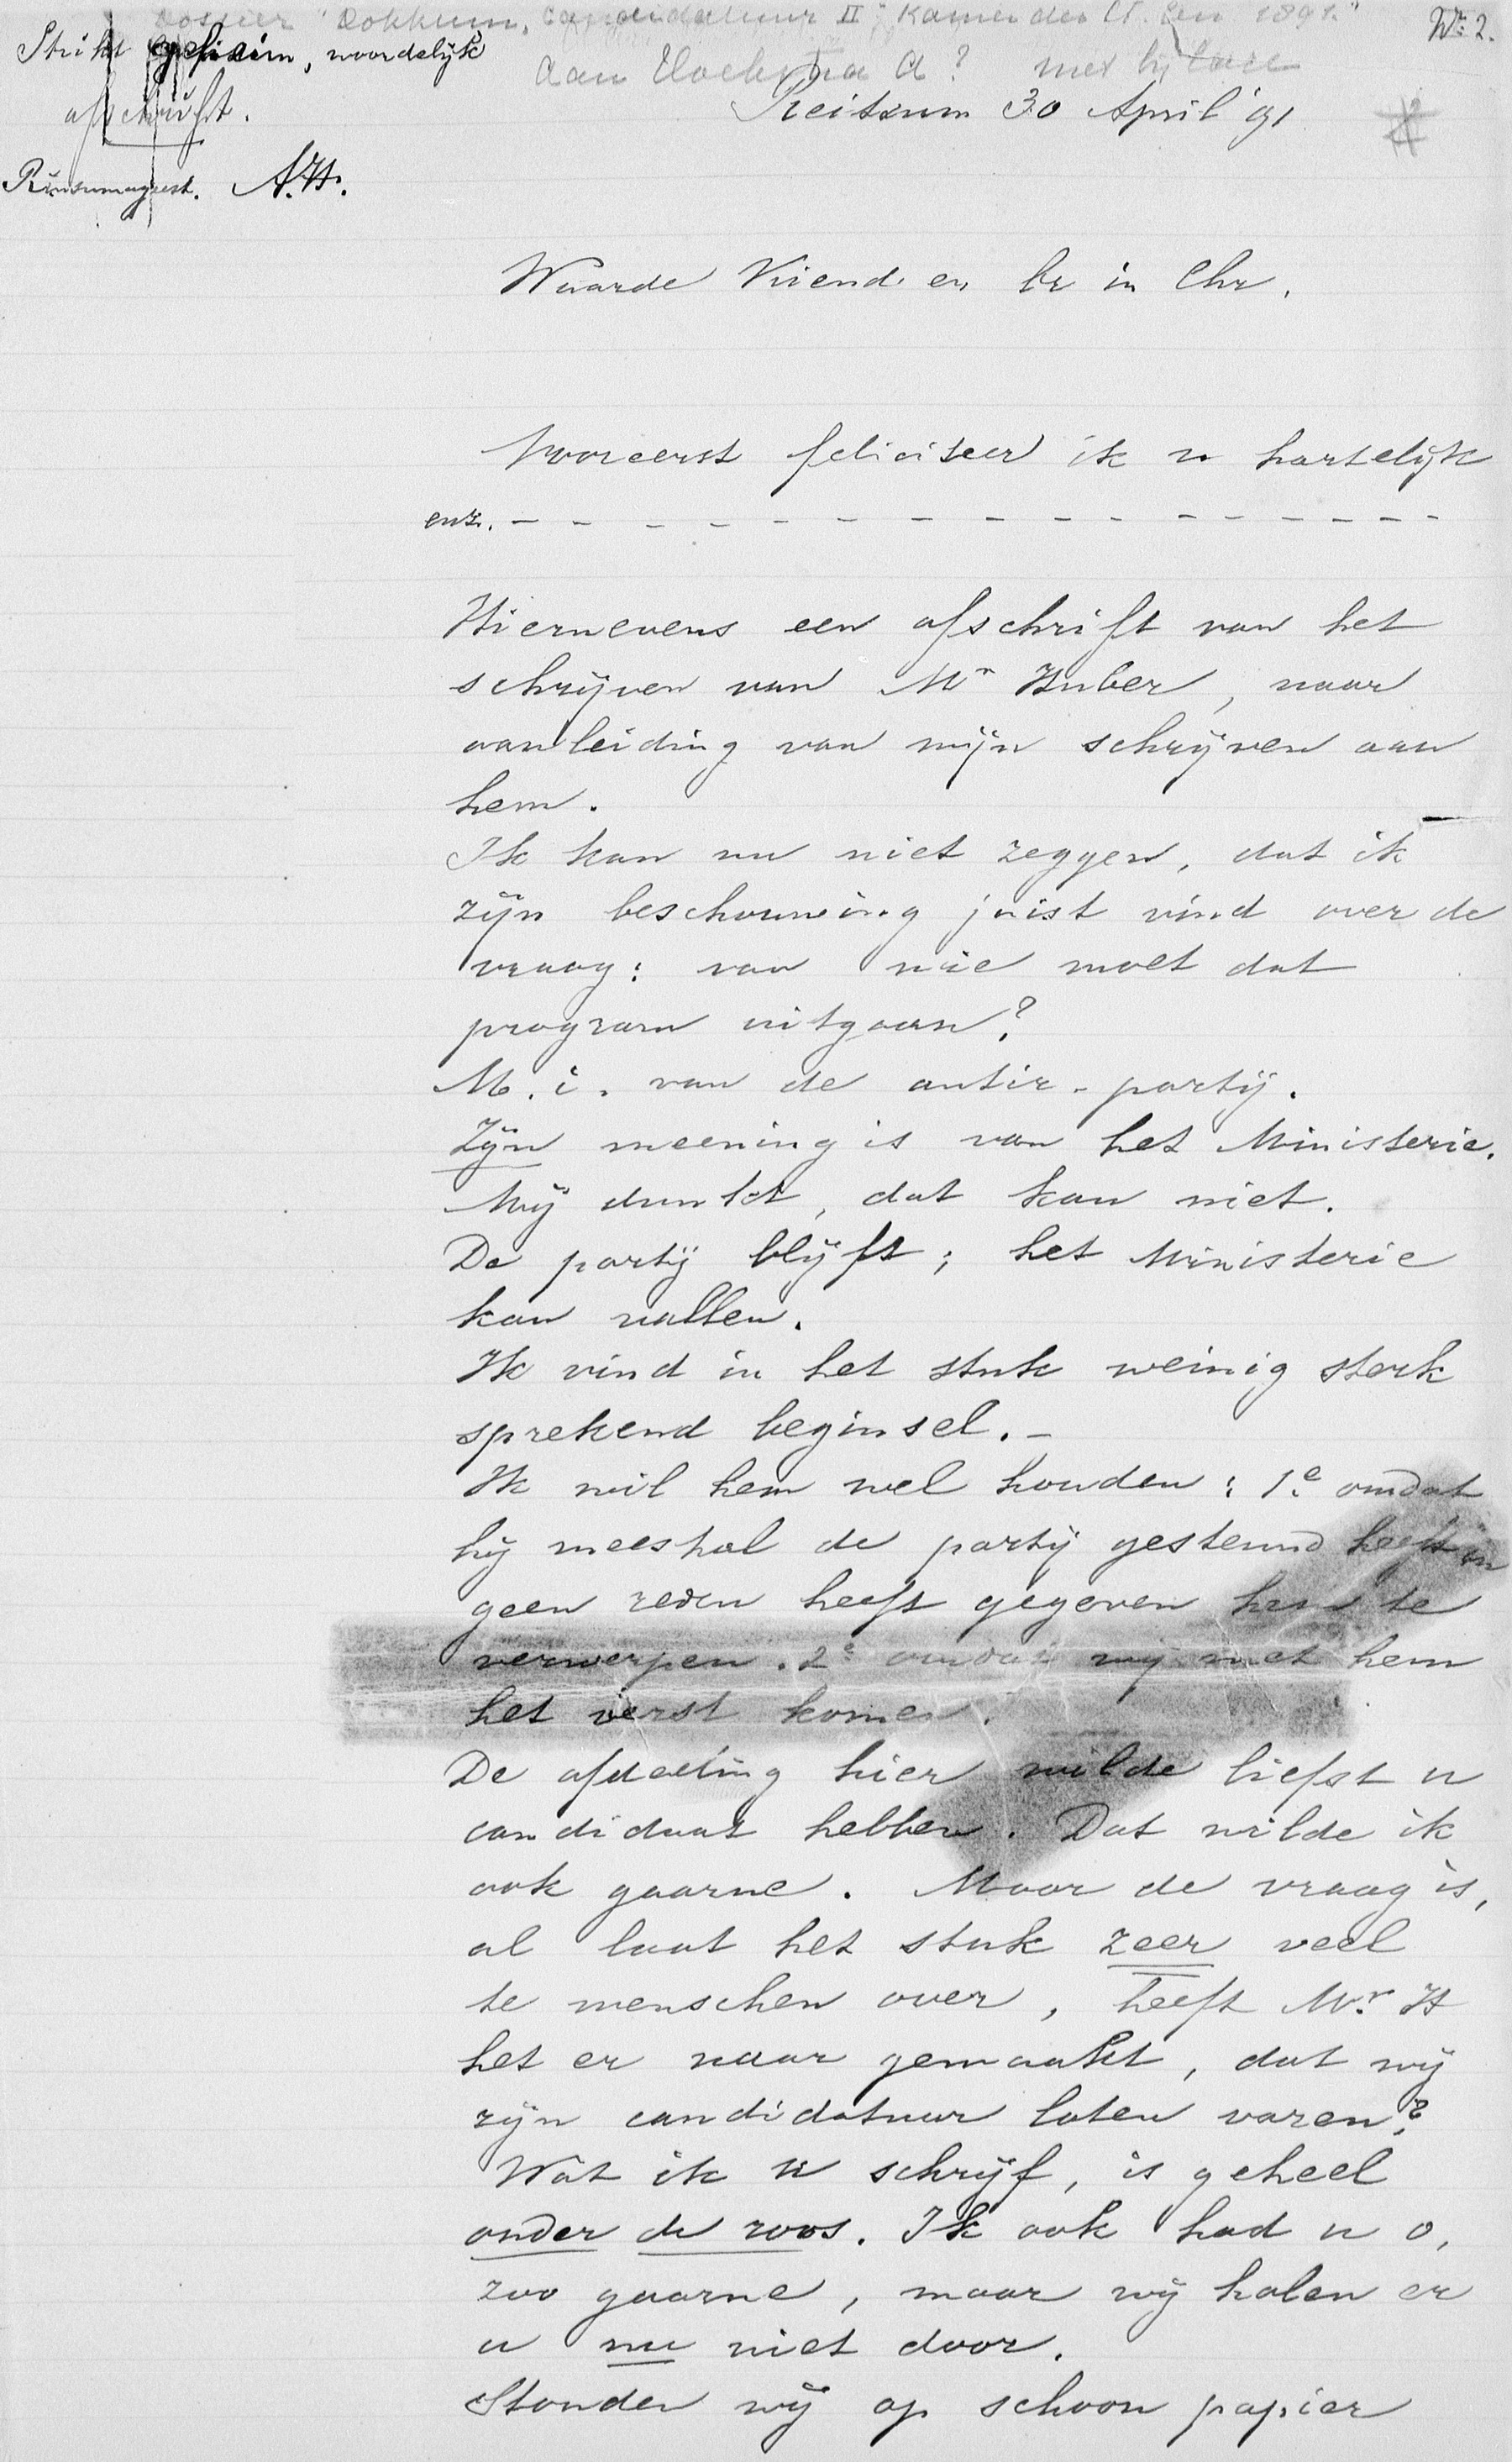 Dossier "Dokkum, candidatuur II Kamer der St. Gen 1891."
No 2.
Strikt geheim, woordelijk
aan Hoekstra A? met bijlage
afschrift.
Reitsum 30 April '91
Rinsumageest. A.H.
Waarde Vriend en br in Chr.
Vooreerst feliciteer ik u hartelijk
enz. - - - - - - - - - - - - - - -
Hiernevens een afschrift van het
schrijven van Mr Huber, naar
aanleiding van mijn schrijven aan
hem.
Ik kan nu niet zeggen, dat ik
zijn beschouwing juist vind over de
vraag: van wie moet dat
program uitgaan?
M.i. van de antir-partij.
Zijn meening is van het Ministerie.
Mij dunkt, dat kan niet.
De partij blijft; het Ministerie
kan vallen.
Ik vind in het stuk weinig sterk
sprekend beginsel.-
Ik wil hem wel houden: 1e omdat
hij meestal de partij gesteund heeft en
geen reden heeft gegeven hem te
verwerpen. 2e omdat wij met hem
het verst komen.
De afdeeling hier wilde liefst u
candidaat hebben. Dat wilde ik
ook gaarne. Maar de vraag is,
al laat het stuk zeer veel
te menschen over, heeft Mr. H
het er naar gemaakt, dat wij
zijn candidatuur laten varen?
Wat ik u schrijf, is geheel
onder de roos. Ik ook had u o,
zoo gaarne, maar wij halen er
u nu niet door.
Stonden wij op schoon papier